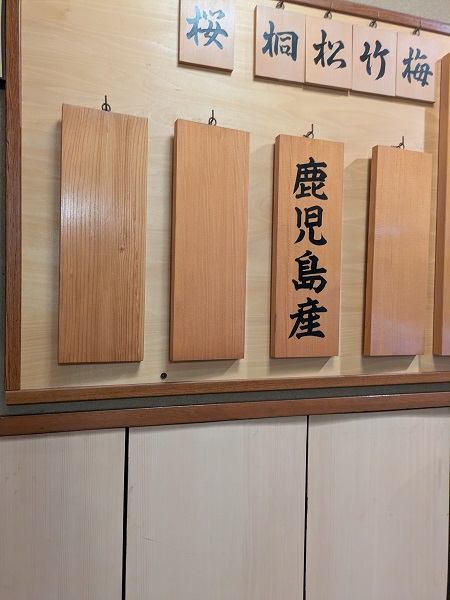 桜
桐
松
竹
梅
鹿児島産